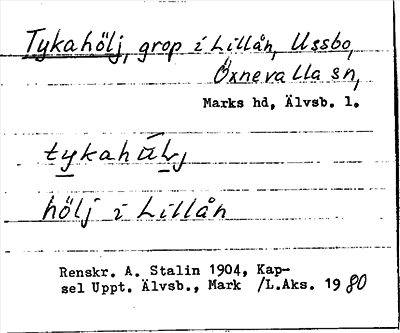 Tykahölj, grop i Lillån, Ussbo,
Öxnevalla sn,
Marks hd, Älvsb. l.
tykahūlj
hölj i Lillån
Renskr. A. Stalin 1904, Kap-
sel Uppt. Älvsb., Mark /L.Aks. 1980